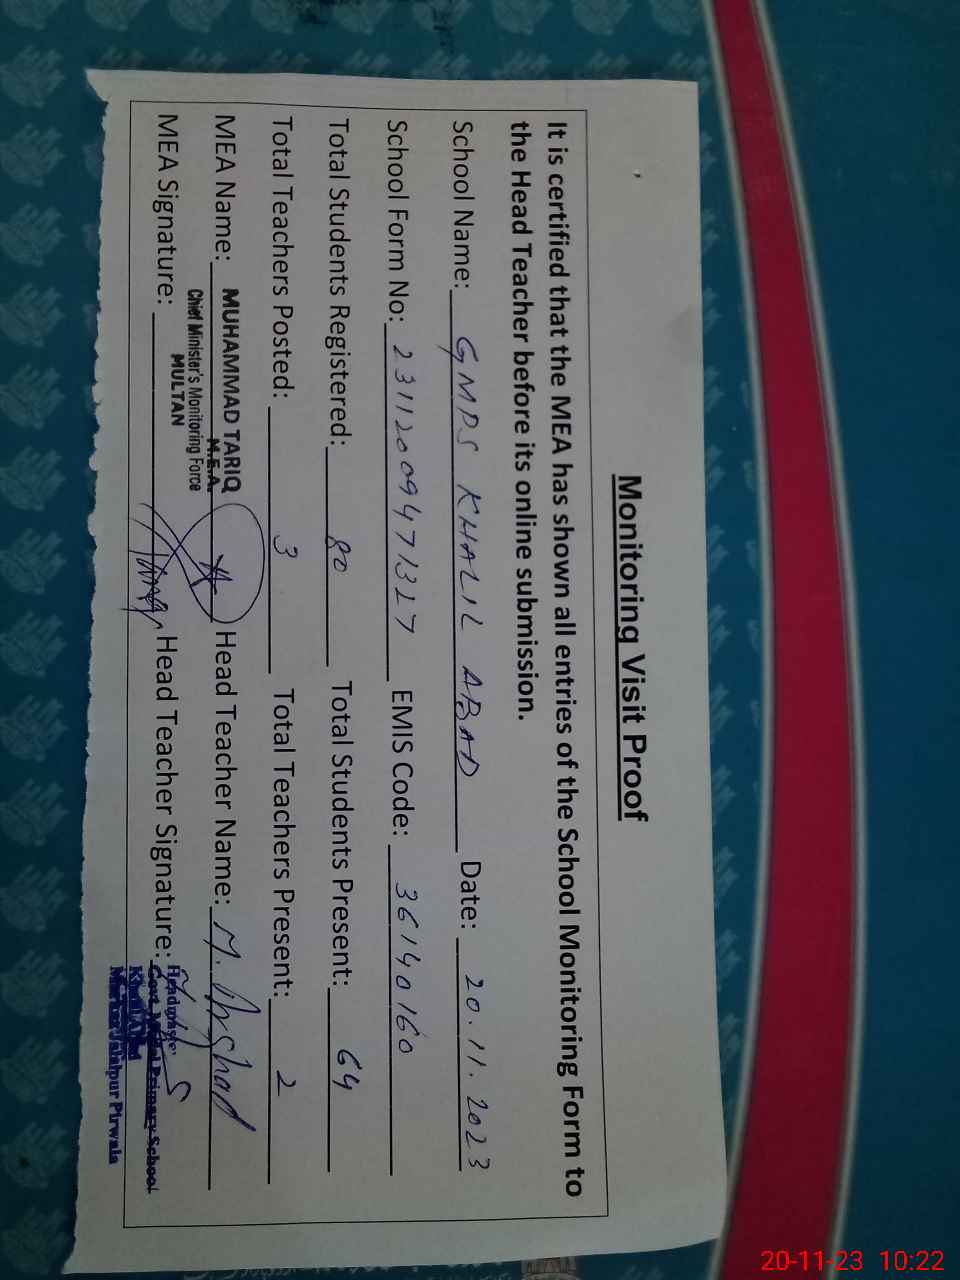 Monitoring Visit Proof
It is certified that the MEA has shown all entries of the School Monitoring Form to
the Head Teacher before its online submission.
School Name: GMPS KHALIL ABAD Date: 20.11.2023
School Form No: 23112009471327 EMIS Code: 36140160
Total Students Registered: 80 Total Students Present: 64
Total Teachers Posted: 3 Total Teachers Present: 2
MEA Name: MUHAMMAD TARIQ Head Teacher Name: M. Arshad
M.E.A.
Chief Minister's Monitoring Force
MULTAN
MEA Signature: Head Teacher Signature:
Headmaster
Govt. Model Primary School
Khalil Abad
Markaz Jalalpur Pirwala
20-11-23 10:22